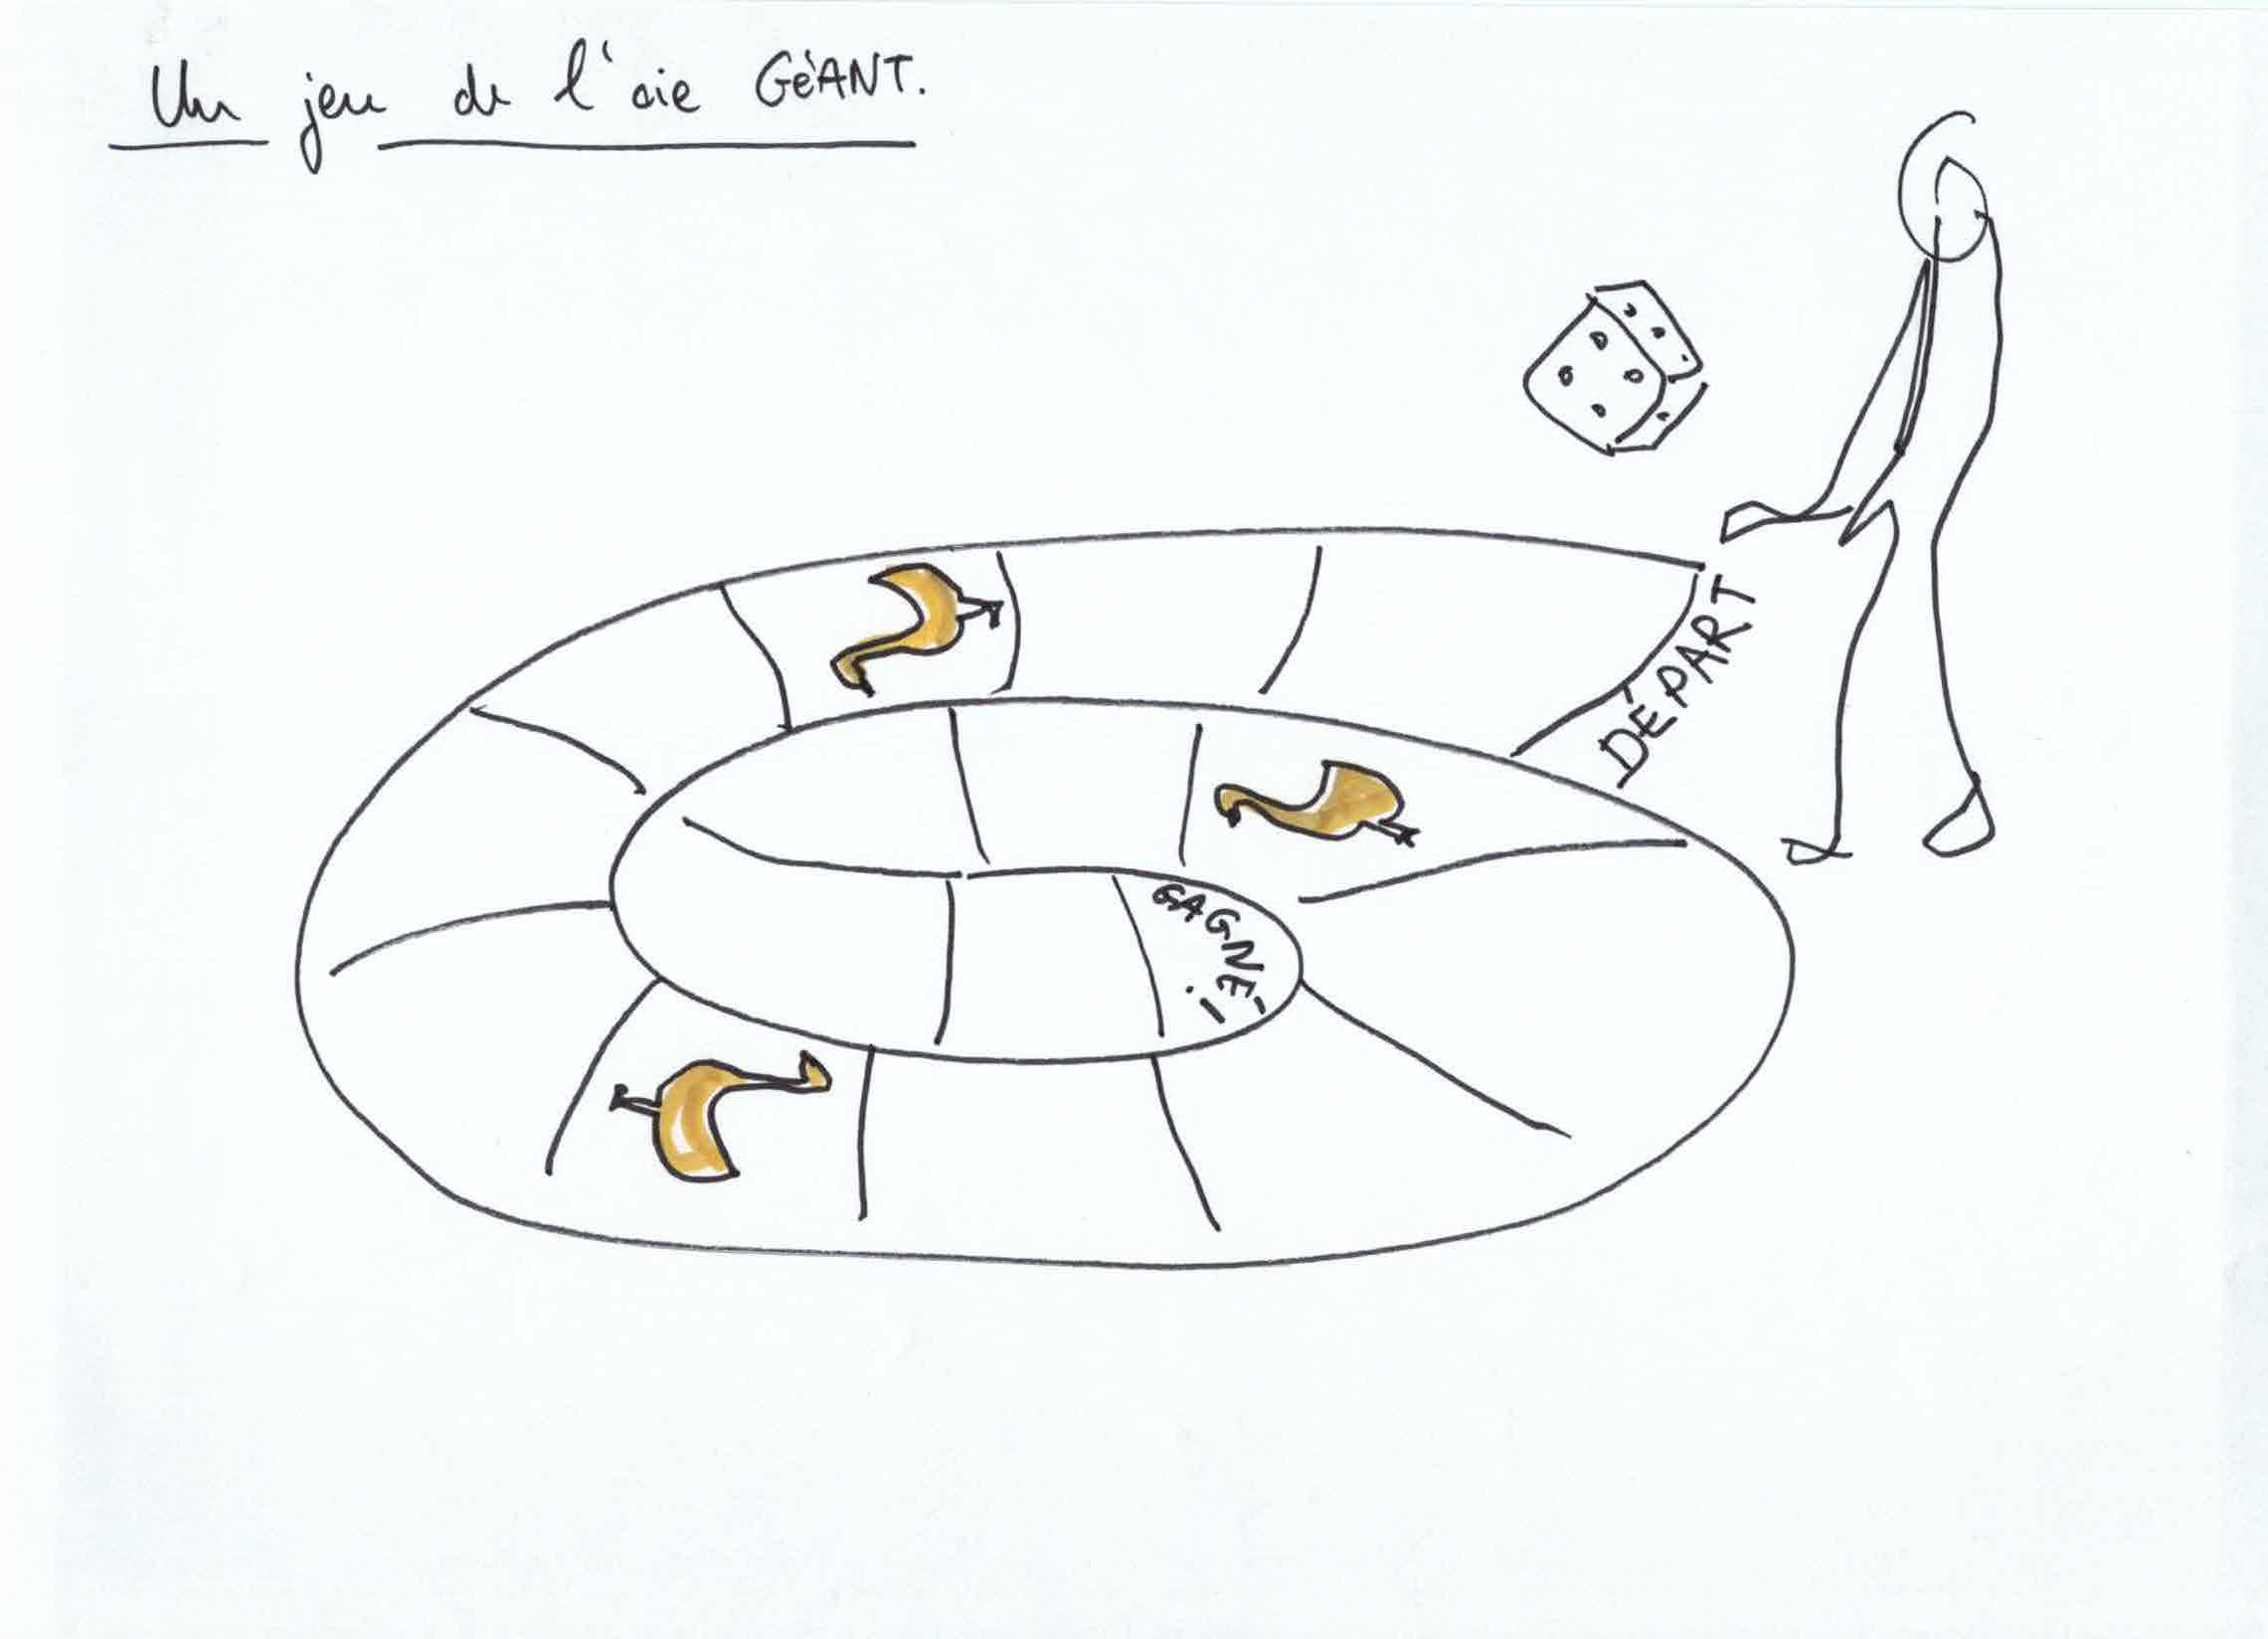 Un jeu de l'oie GéANT.
DÉPART
GAGNÉ!